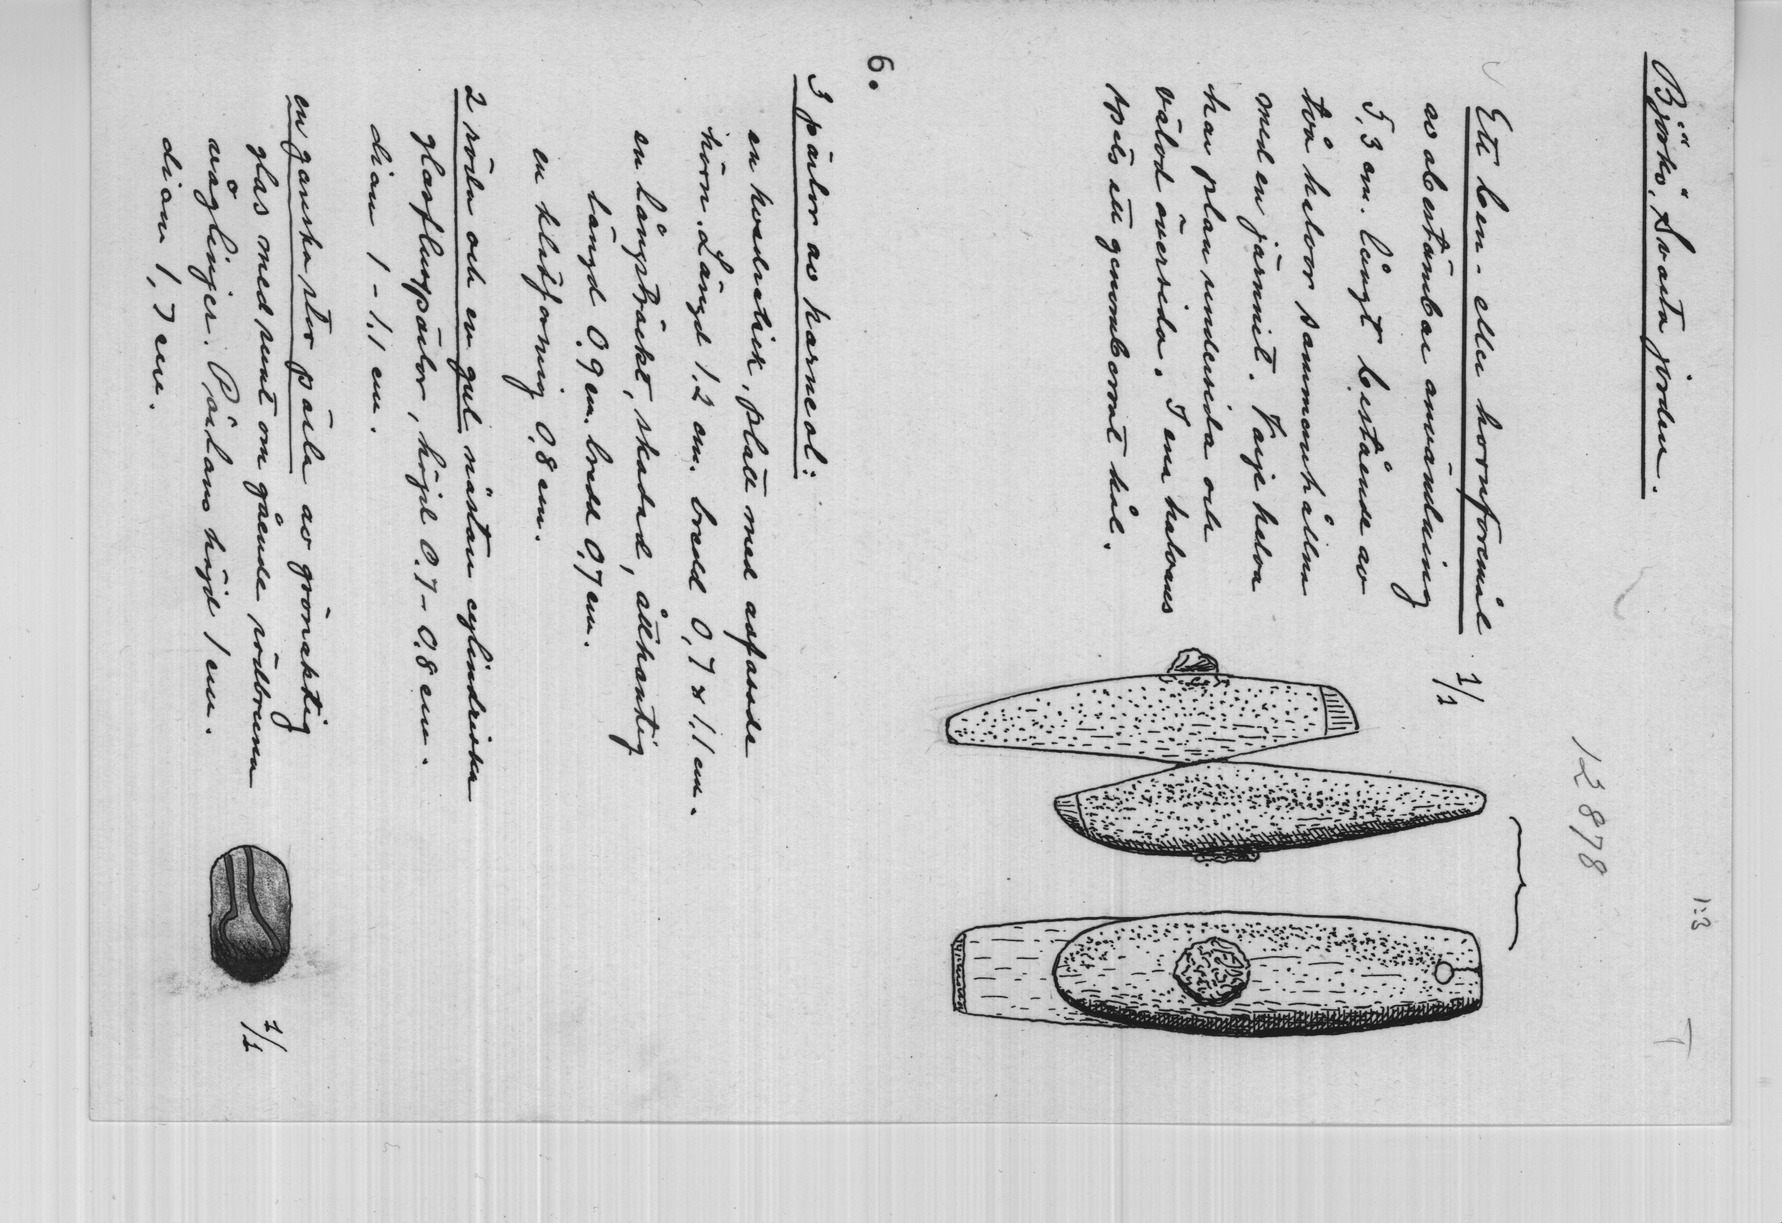 Björkö, Svarta jorden.
1:3
T
12878
Ett ben- eller hornföremål 1/1
av obestämbar användning
5,3 cm. långt bestående av
två halvor sammanhållna
med en järnnit. Varje halva
har plan undersida och
välvd översida. I ena halvans
spets ett genomborrat hål.
6.
3 pärlor av karneol:
en kvadratisk, platt med avfasade
hörn. Längd 1.2 cm. bredd 0,7 x 1.1 cm.
en långsträckt, skadad, åttkantig
längd 0.9 cm. bredd 0.7 cm.
en klotformig 0.8 cm.
2 röda och en gul nästan cylindriska
glasflusspärlor, höjd 0.7-0.8 cm.
diam 1-1.1 cm.
en ganska stor pärla av grönaktig
glas med runt om gående rödbruna
våglinjer. Pärlans höjd 1 cm.
diam 1,7 cm.
1/1